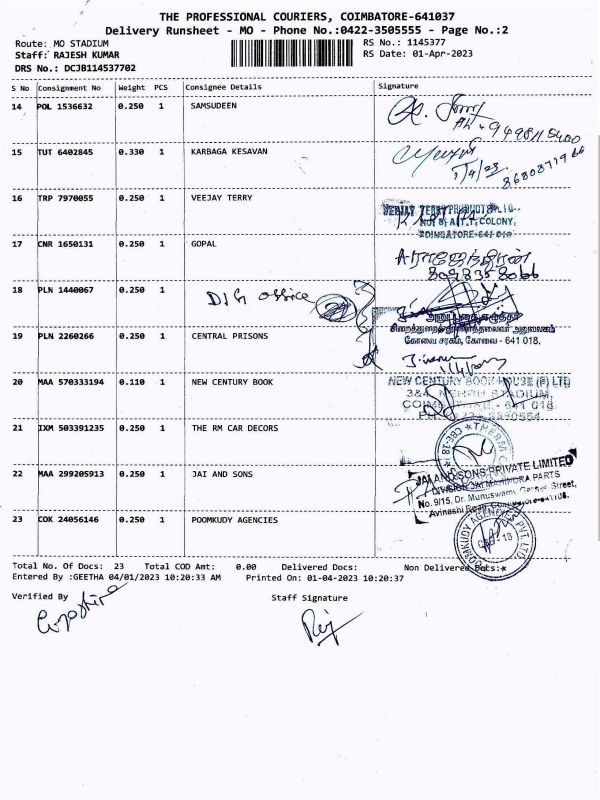 THE PROFESSIONAL COURIERS, COIMBATORE-641037
Delivery Runsheet - MO - Phone No.:0422-3505555 - Page No.:2
Route: MO STADIUM
RS No.: 1145377
Staff: RAJESH KUMAR
RS Date: 01-Apr-2023
DRS No.: DCJB114537702
S No Consignment No Weight PCS Consignee Details Signature
14 POL 1536632 0.250 1 SAMSUDEEN
15 TUT 6402845 0.330 1 KARBAGA KESAVAN
1/4/23
8680871966
16 TRP 7970055 0.250 1 VEEJAY TERRY
COLONY,
COIMBATORE-641 018
17 CNR 1650131 0.250 1 GOPAL
A-ராஜேந்திரன்
8098358066
18 PLN 1440067 0.250 1 DIG office
சிறைத்துறை அலுவலகம்
கோவை சரகம், கோவை - 641 018.
19 PLN 2260266 0.250 1 CENTRAL PRISONS
20 MAA 570333194 0.110 1 NEW CENTURY BOOK
NEW CENTURY BOOK HOUSE (P) LTD
STADIUM,
641 018
21 IXM 503391235 0.250 1 THE RM CAR DECORS
22 MAA 299205913 0.250 1 JAI AND SONS
JAI AND SONS PRIVATE LIMITED
No. 9/15, Dr. Munuswamy Street,
Avinashi Road,
23 COK 24056146 0.250 1 POOMKUDY AGENCIES
POOMKUDY AGENCIES PVT. LTD.
Total No. Of Docs: 23 Total COD Amt: 0.00 Delivered Docs: Non Delivered Docs:
Entered By :GEETHA 04/01/2023 10:20:33 AM Printed On: 01-04-2023 10:20:37
Verified By
Staff Signature